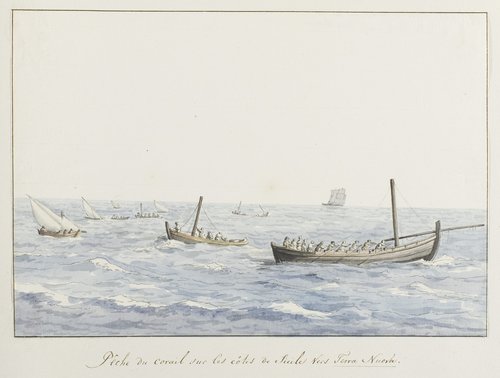 Pêche du corail sur les côtes de Sicile vers Terra Nuova.